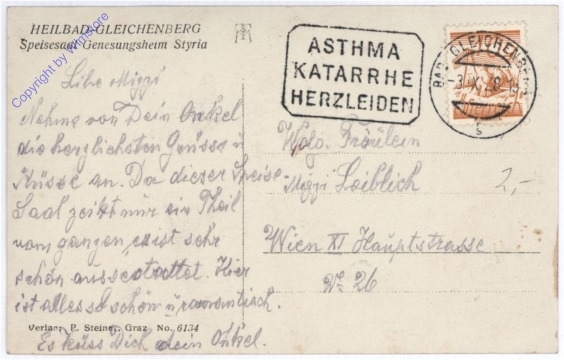 HEILBAD GLEICHENBERG
Speisesaal Genesungsheim Styria
Copyright by Wimstore
ASTHMA
KATARRHE
HERZLEIDEN
BAD GLEICHENBERG
Libe Mizzi
Nehme von Dein Onkel
die herzlichsten Grüsse u
Küsse an. Da dieser Speise-
Saal zeikt nur ein Theil
vom ganzen, exist sehr
schön ausgestattet. Hier
ist alles so schön u romantisch.
Es küss Dich dein Onkel.
Wolg. Fräulein
Mizzi Loiblich
2,-
Wien XI Hauptstrasse
No 26
Verlag: P. Steiner, Graz No. 6134